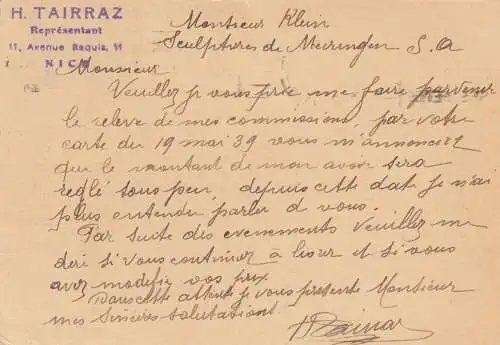 H. TAIRRAZ
Représentant
11, Avenue Baquis, 11
NICE
Monsieur Klein
Sculptures de Meiringen S. A
Monsieur
Veuillez je vous prie me faire parvenir
le relevé de mes commissions, par votre
carte du 19 mai 39 vous m'annonciez
que le montant de mon avoir sera
reglé sous peu, depuis cette date je n'ai
plus entendu parler d vous.
Par suite des evenements veuillez me
dire si vous continuez à livrer et si vous
avez modifié vos prix
Dans cette attente je vous présente Monsieur
mes sincères salutations.